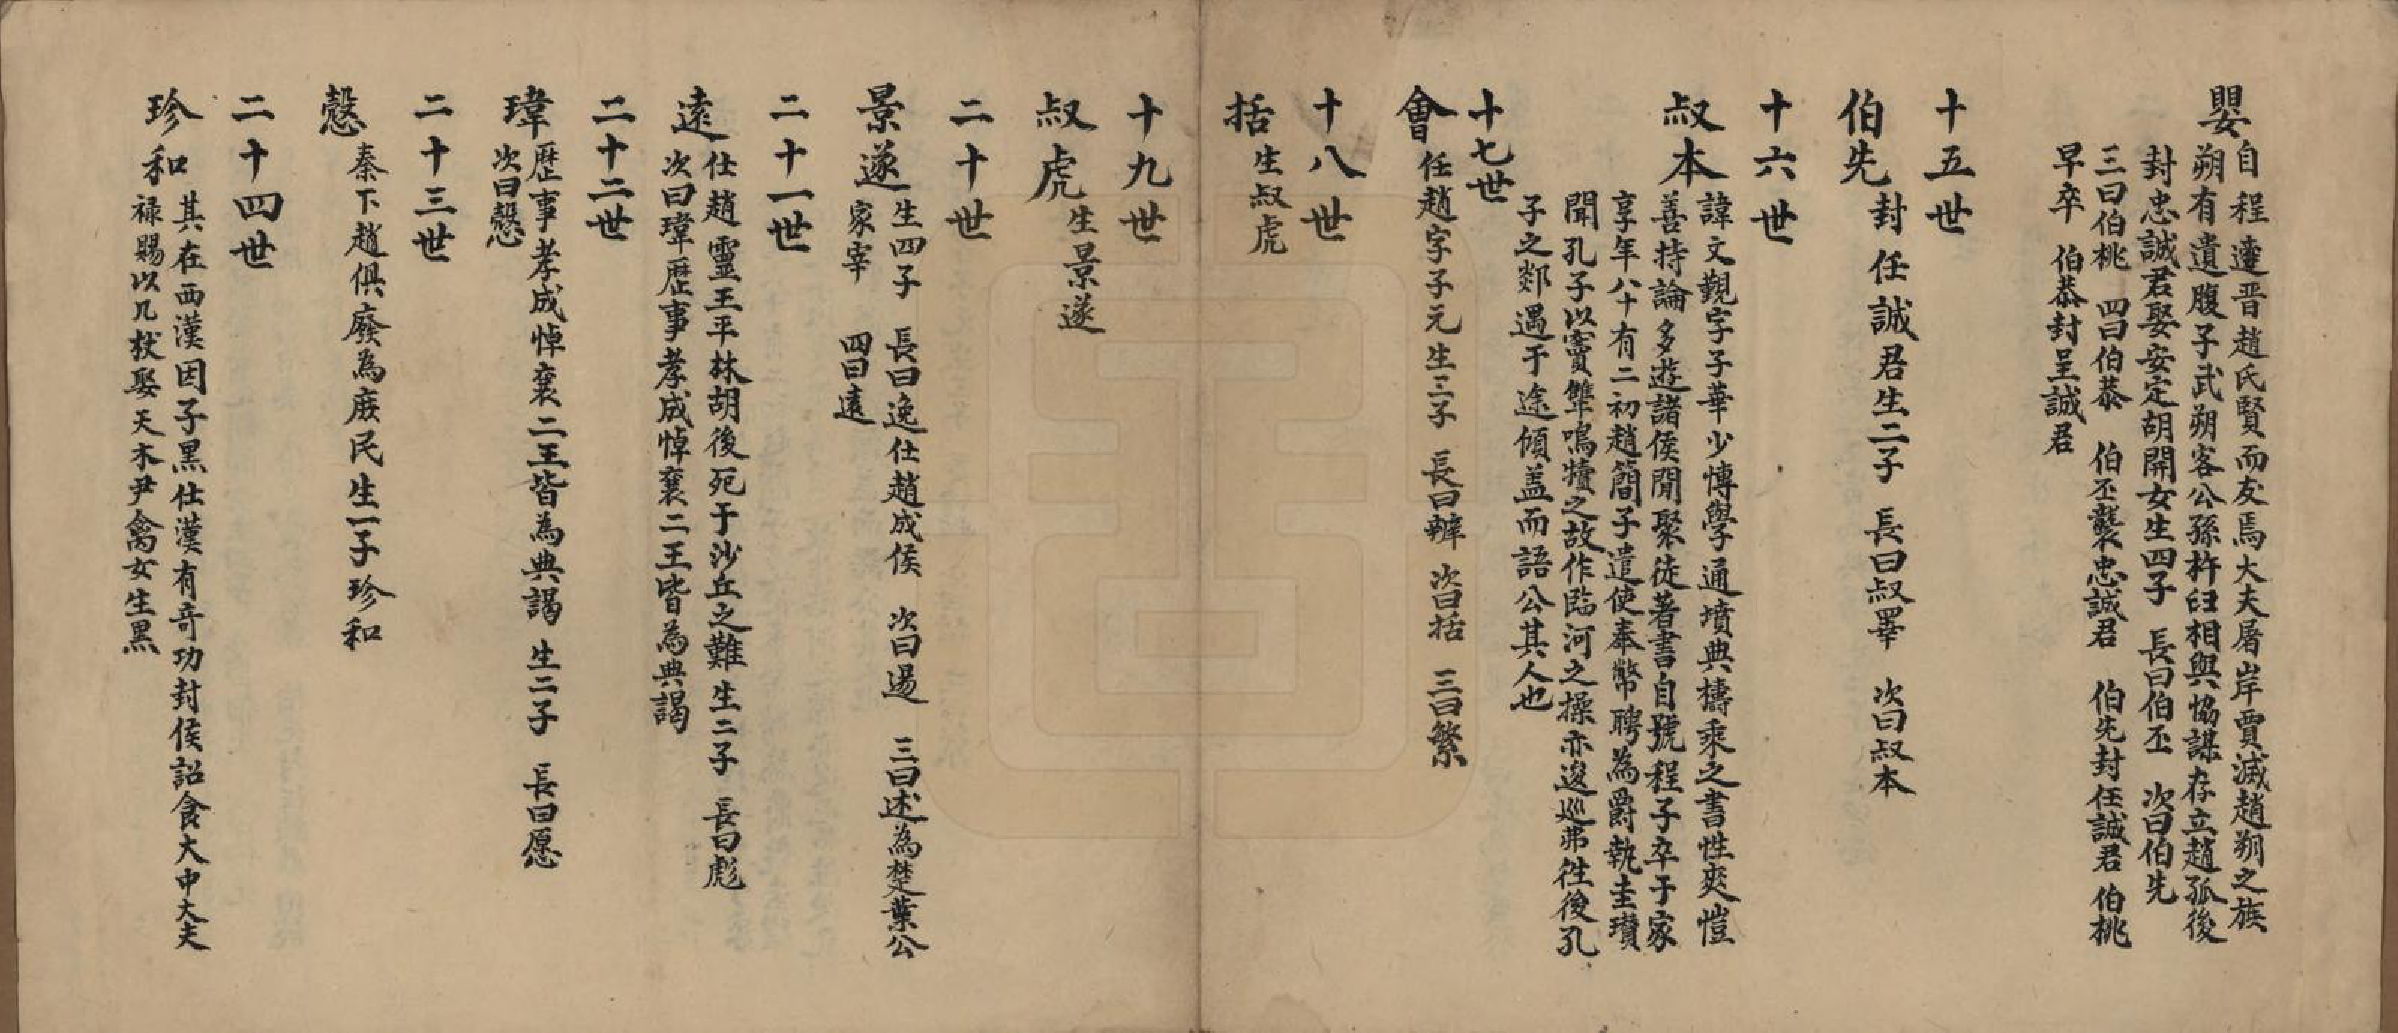 嬰自程遷晋趙氏賢而友焉大夫屠岸賈滅趙朔之族
朔有遺腹子武朔客公孫杵臼相與恊謀存立趙孤後
封忠誠君娶安定胡開女生四子 長曰伯丕 次曰伯先
三曰伯桃 四曰伯恭 伯丕襲忠誠君 伯先封任誠君 伯桃
早卒 伯恭封呈誠君
十五世
伯先封任誠君生二子 長曰叔睪 次曰叔本
十六世
叔本諱文觀字子華少愽學通墳典檮乘之書性爽愷
善持論多遊諸侯聞聚徒著書自號程子卒于家
享年八十有二初趙簡子遣使奉幣聘為爵執圭瓉
聞孔子以竇犨鳴犢之故作臨河之操亦逡巡弗徃後孔
子之郯遇于途傾盖而語公其人也
十七世
會任趙字子元生三子 長曰辦 次曰括 三曰繁
十八世
括生叔虎
十九世
叔虎生景遂
二十世
景遂生四子 長曰逸仕趙成侯 次曰逷 三曰述為楚葉公
家宰 四曰遠
二十一世
遠仕趙靈王平林胡後死于沙丘之難生二子 長曰彪
次曰瑋歷事孝成悼襄二王皆為典謁
二十二世
瑋歷事孝成悼襄二王皆為典謁 生二子 長曰愿
次曰慤
二十三世
慤秦下趙俱廢為庶民生一子珍和
二十四世
珍和其在西漢因子黑仕漢有竒功封侯詔食大中大夫
祿賜以几杖娶天木尹禽女生黑